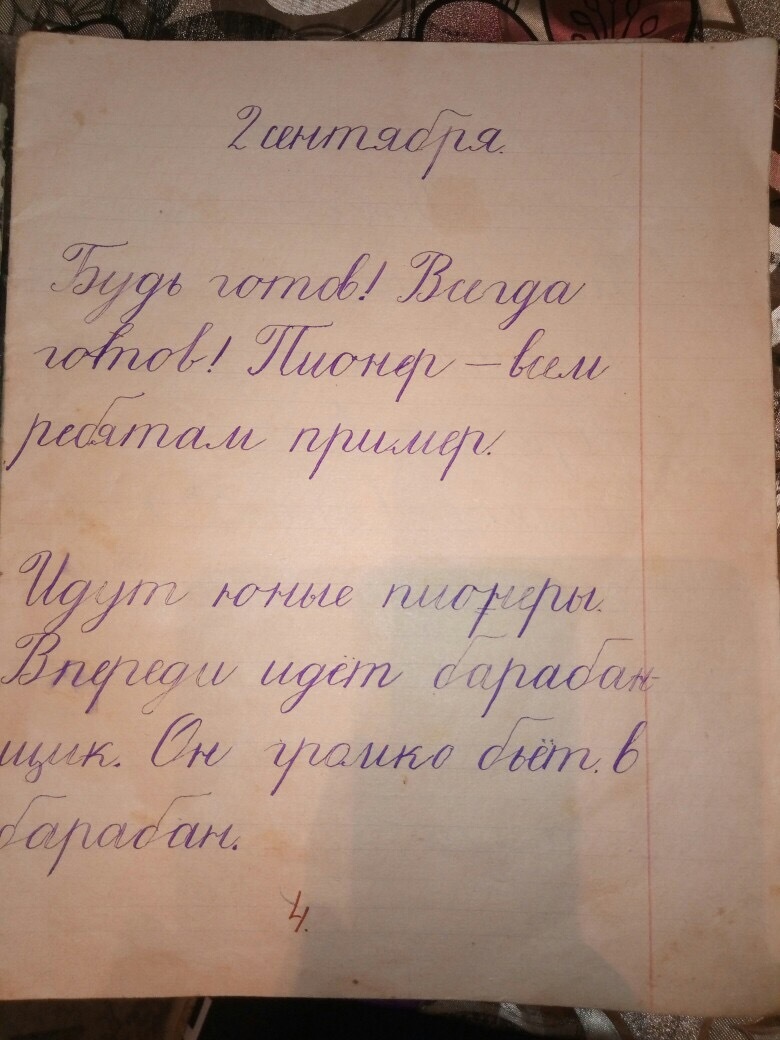 2 сентября.
Будь готов! Всегда
готов! Пионер – всем
ребятам пример.
Идут юные пионеры.
Впереди идёт барабан-
щик. Он громко бьёт. в
барабан.
4.